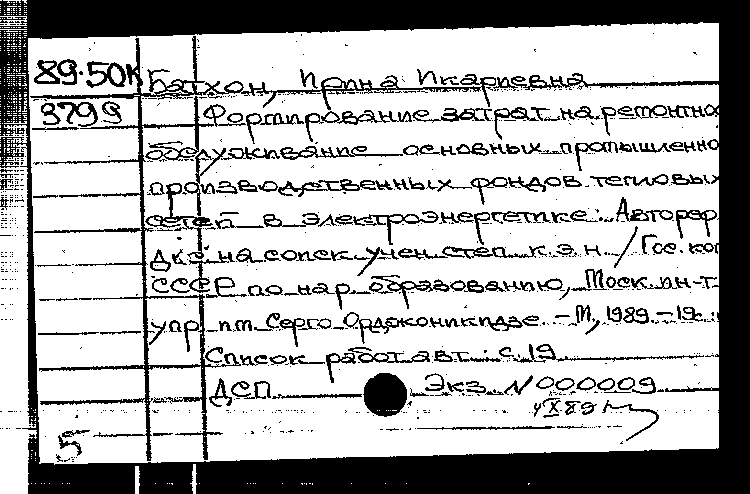 89-50К Батхон, Ирина Икариевна
3799 Формирование затрат на ремонтно
обслуживание основных промышленно
производственных фондов тепловых
сетей в электроэнергетике: Автореф
дис. на соиск. учен. степ. к.э.н. / Гос. ком
СССР по нар. образованию, Моск. ин-т
упр. им. Серго Орджоникидзе. - М., 1989. - 19с.
Список работ авт.: с. 19
ДСП Экз. N 000009
IX 89
5